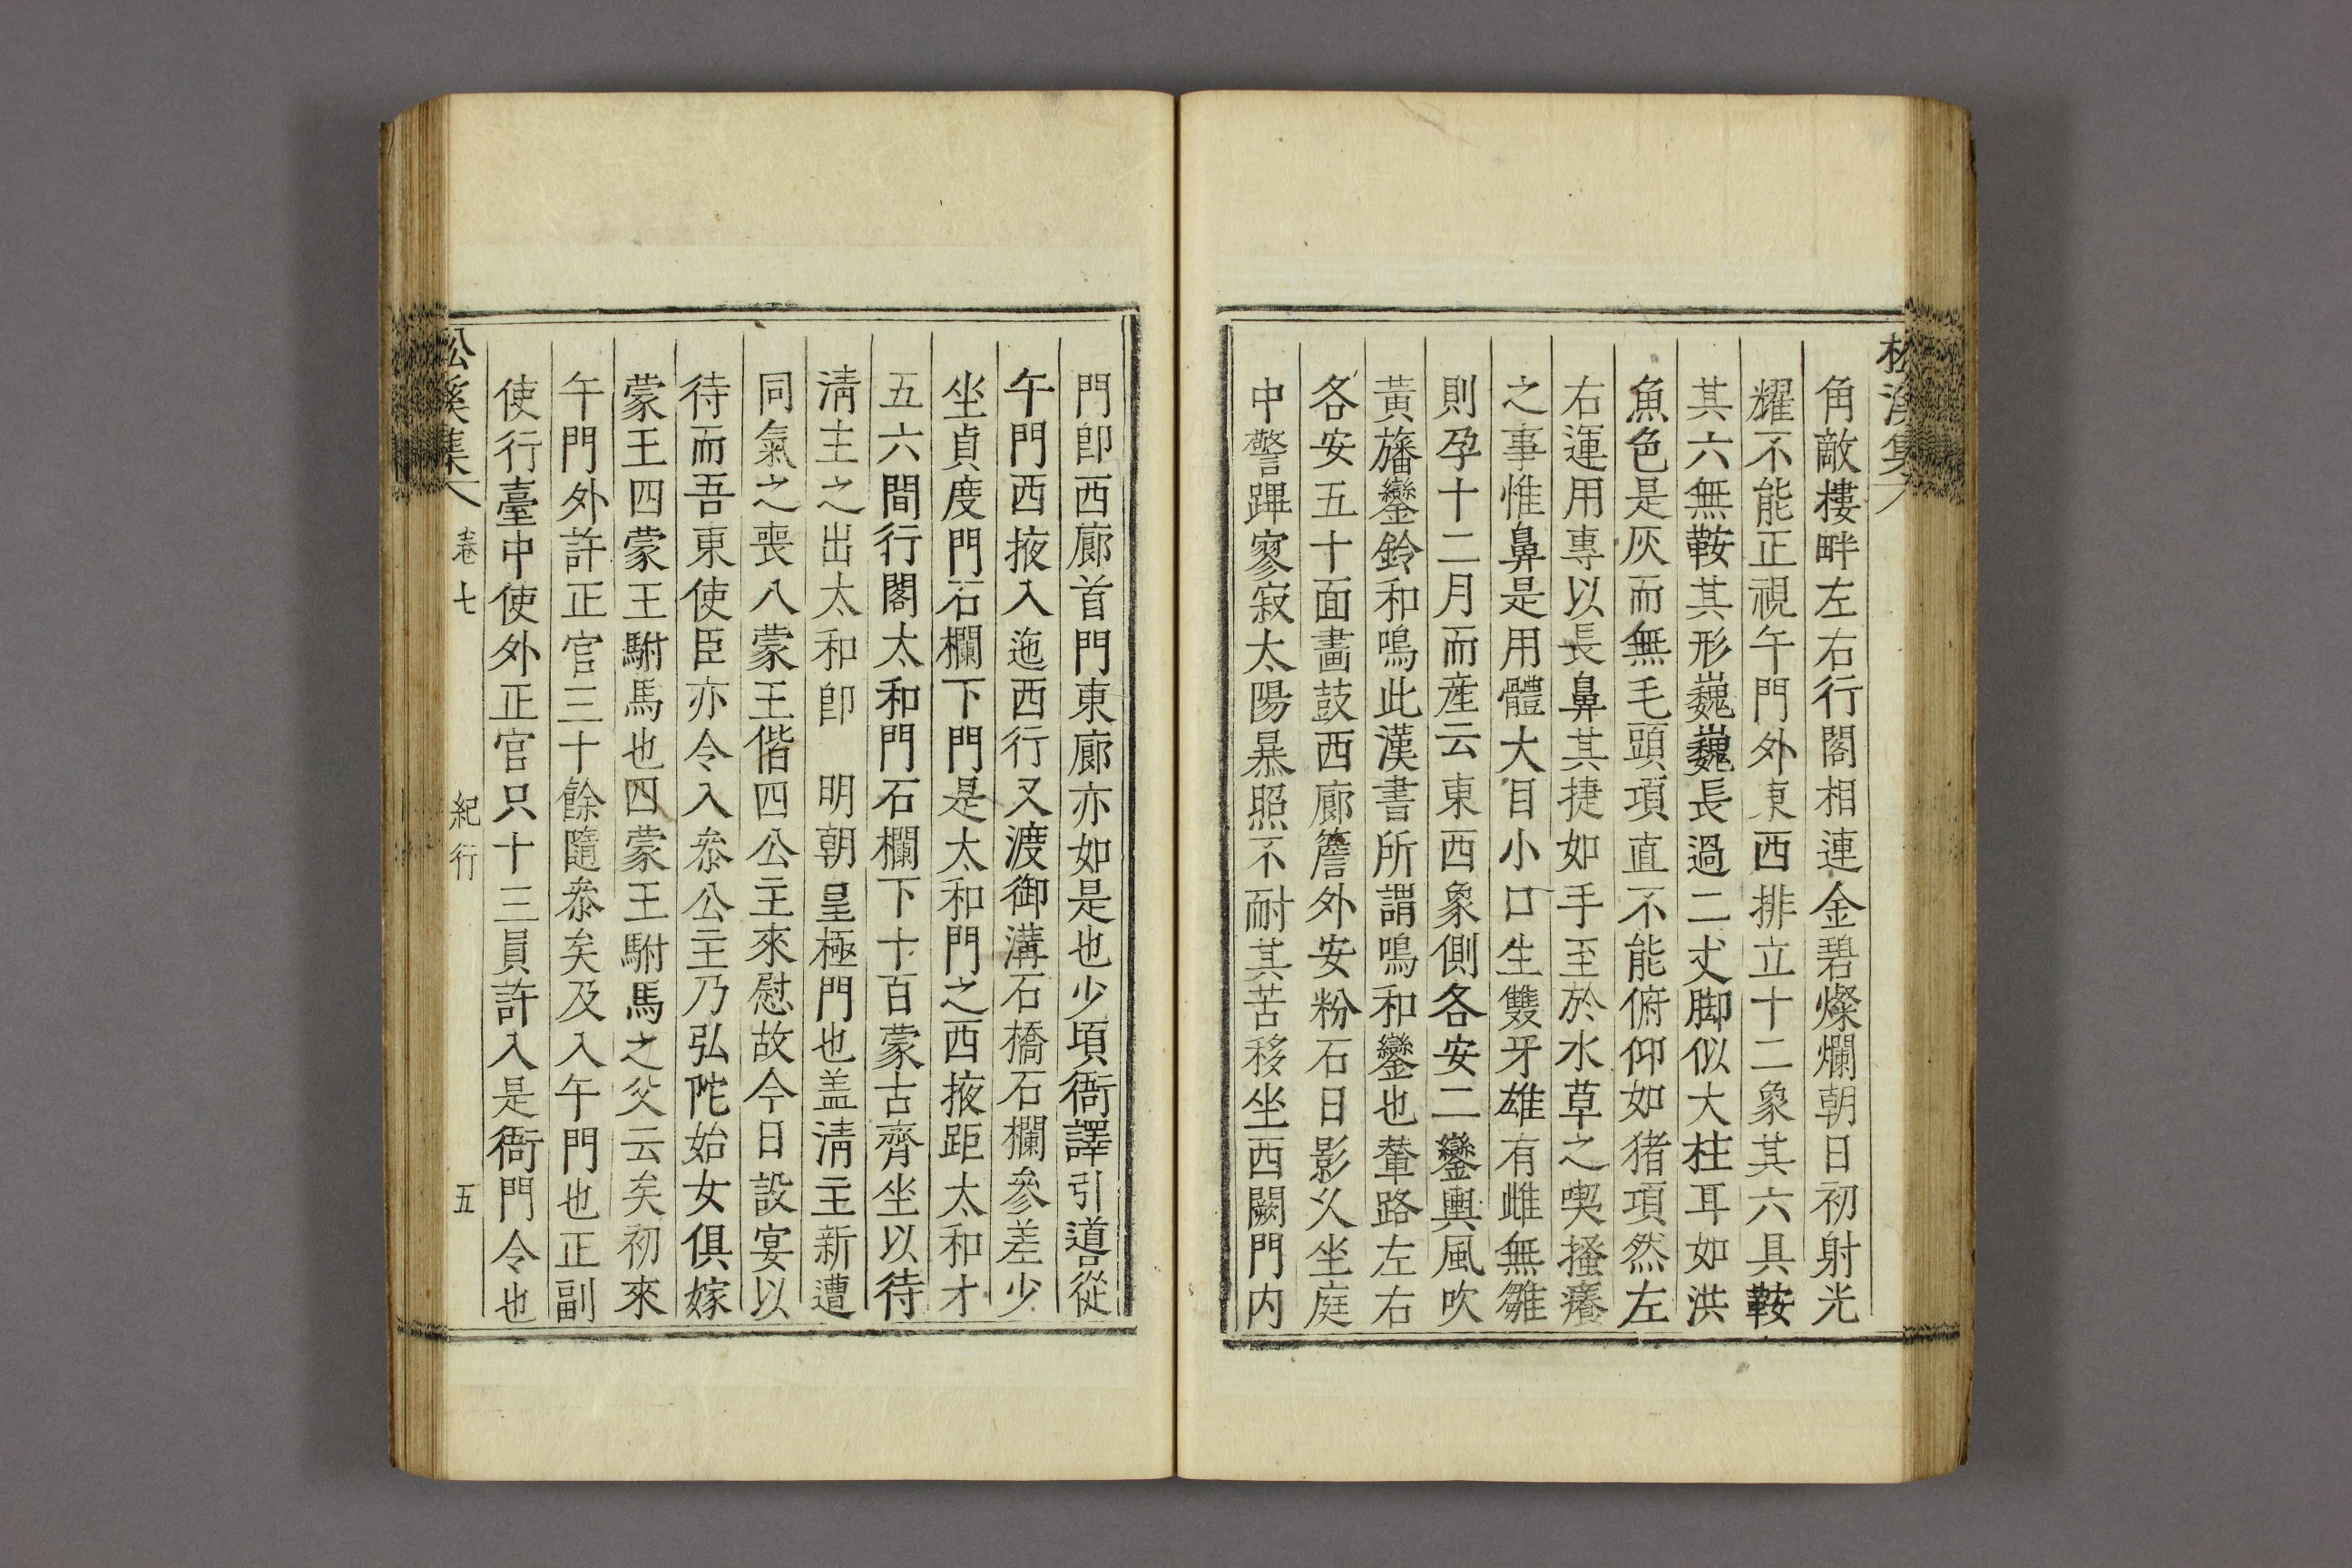 松溪集
角敵樓畔左右行閣相連金碧燦爛朝日初射光
耀不能正視午門外東西排立十二象其六具鞍
其六無鞍其形巍巍長過二丈脚似大柱耳如洪
魚色是灰而無毛頭項直不能俯仰如猪項然左
右運用專以長鼻其捷如手至於水草之喫搔癢
之事惟鼻是用體大目小口生雙牙雄有雌無雛
則孕十二月而産云東西象側各安二鑾輿風吹
黃旛鑾鈴和鳴此漢書所謂鳴和鑾也輦路左右
各安五十面畫鼓西廊簷外安粉石日影乆坐庭
中警蹕寥寂太陽暴照不耐其苦移坐西闕門内
門卽西廊首門東廊亦如是也少頃衙譯引導從
午門西掖入迤西行又渡御溝石橋石欄參差少
坐貞度門石欄下門是太和門之西掖距太和才
五六間行閣太和門石欄下十百蒙古齊坐以待
淸主之出太和卽 明朝皇極門也盖淸主新遭
同氣之喪八蒙王偕四公主來慰故今日設宴以
待而吾東使臣亦令入叅公主乃弘陀始女俱嫁
蒙王四蒙王駙馬也四蒙王駙馬之父云矣初來
午門外許正官三十餘隨叅矣及入午門也正副
使行臺中使外正官只十三員許入是衙門令也
松溪集 卷七 紀行 五